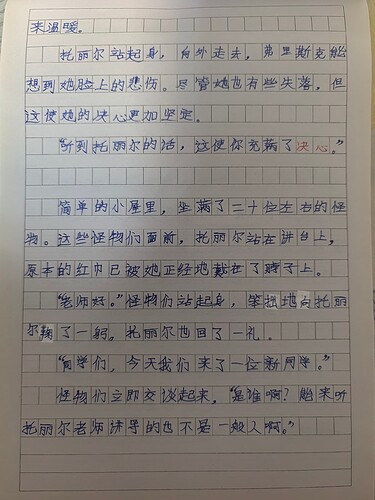 来温暖。
托丽尔站起身，向外走去，弗里斯克能
想到她脸上的悲伤。尽管她也有些失落，但
这使她的决心更加坚定。
“听到托丽尔的话，这使你充满了决心。”
简单的小屋里，坐满了二十位左右的怪
物。这些怪物们面前，托丽尔站在讲台上，
原本的红巾已被她正经地戴在了脖子上。
“老师好。”怪物们站起身，笨拙地向托丽
尔鞠了一躬。托丽尔也回了一礼。
“同学们，今天我们来了一位新同学。”
怪物们立即交谈起来，“是谁啊？能来听
托丽尔老师讲导的也不是一般人啊。”